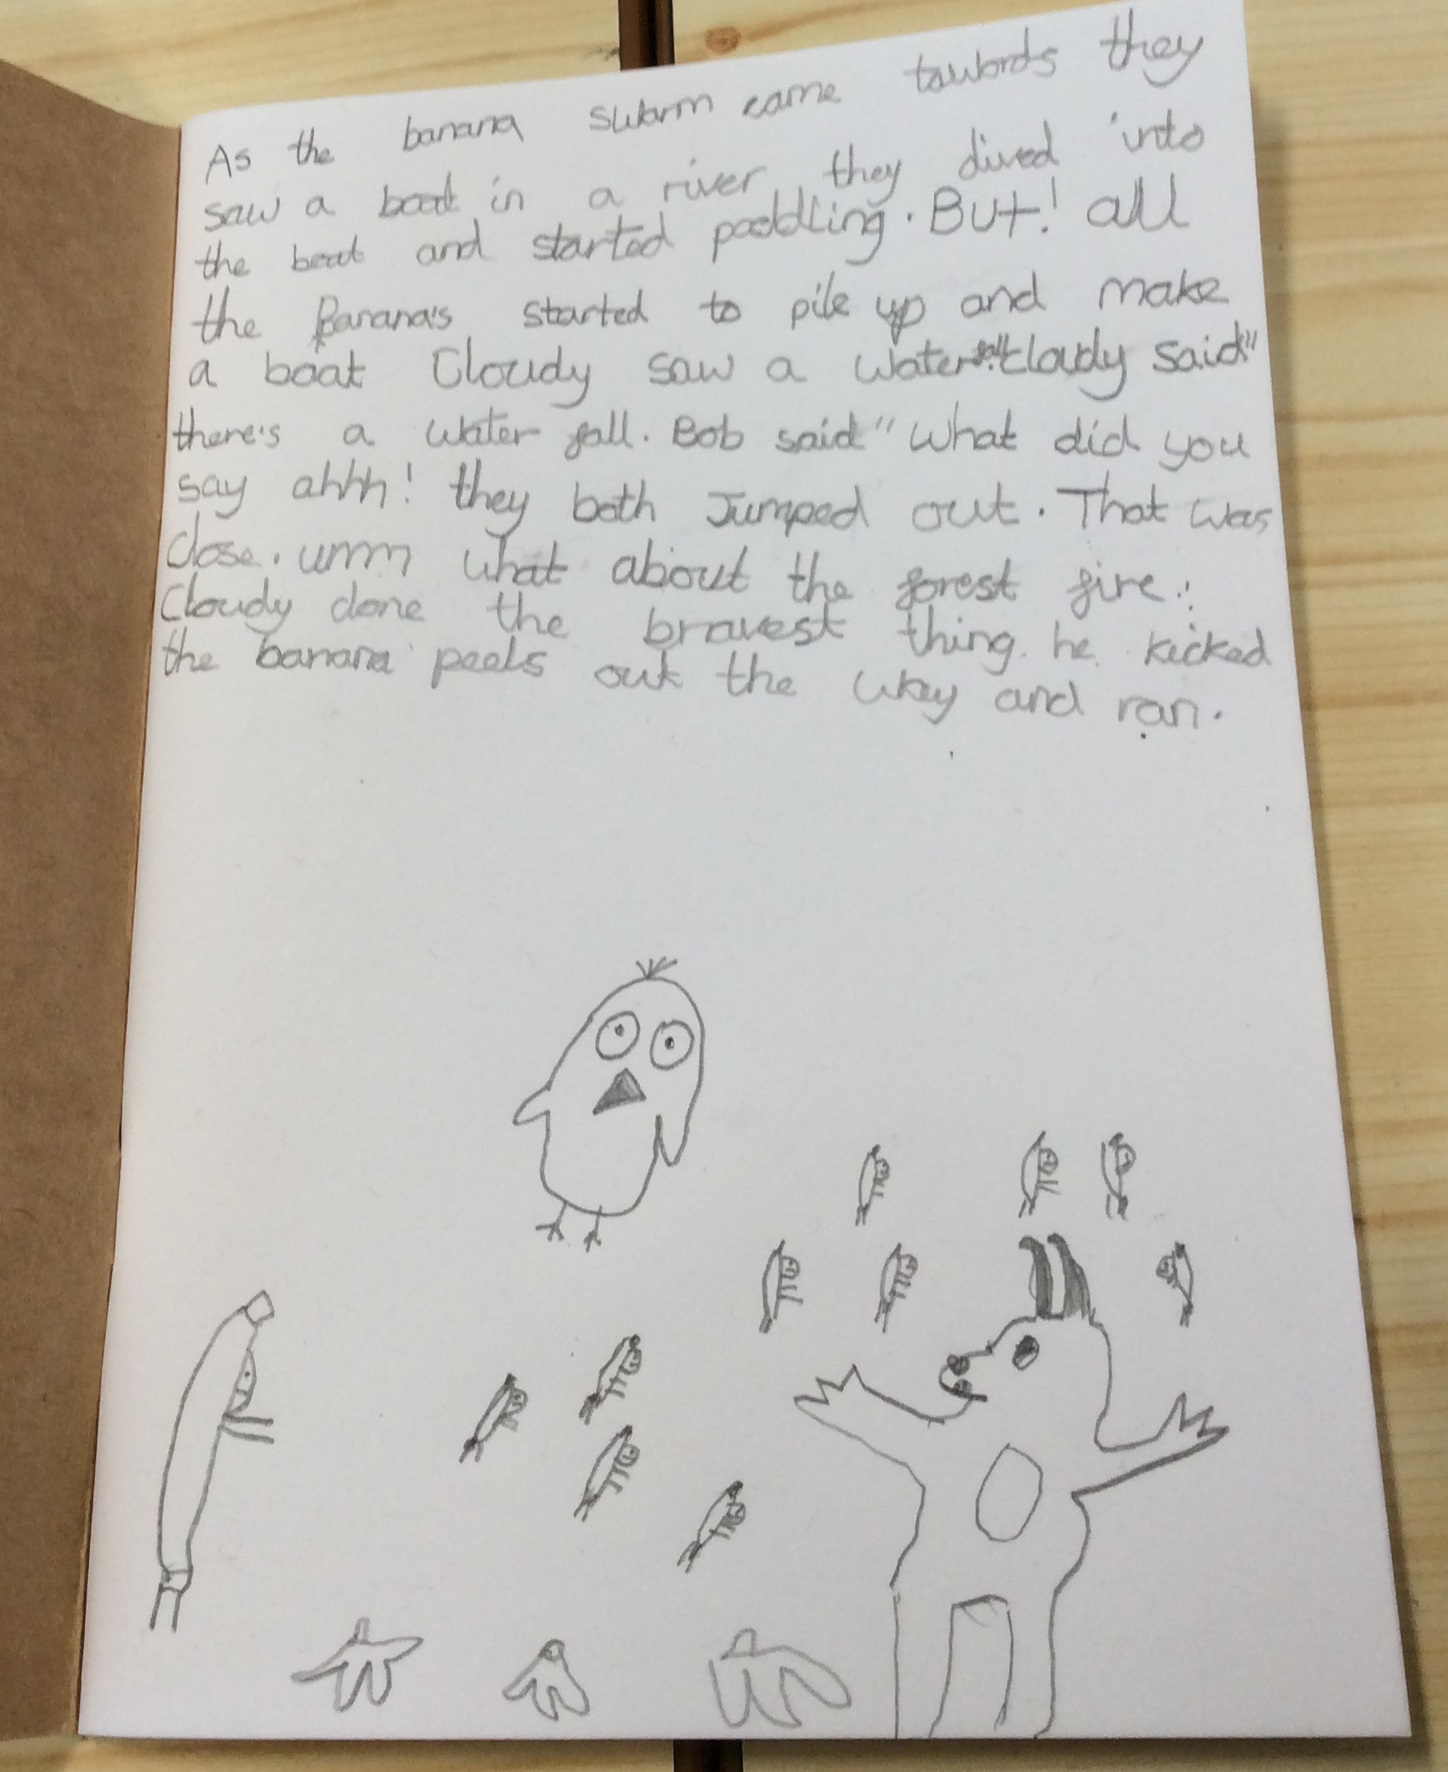 As the banana swarm came towards they
saw a boat in a river they dived into
the boat and started paddling. But! all
the Banana's started to pile up and make
a boat Cloudy saw a waterfall "Cloudy said"
there's a water fall. Bob said "what did you
say ahhh! they both Jumped out. That was
close. umm what about the forest fire.
Cloudy done the bravest thing. he kicked
the banana peels out the way and ran.